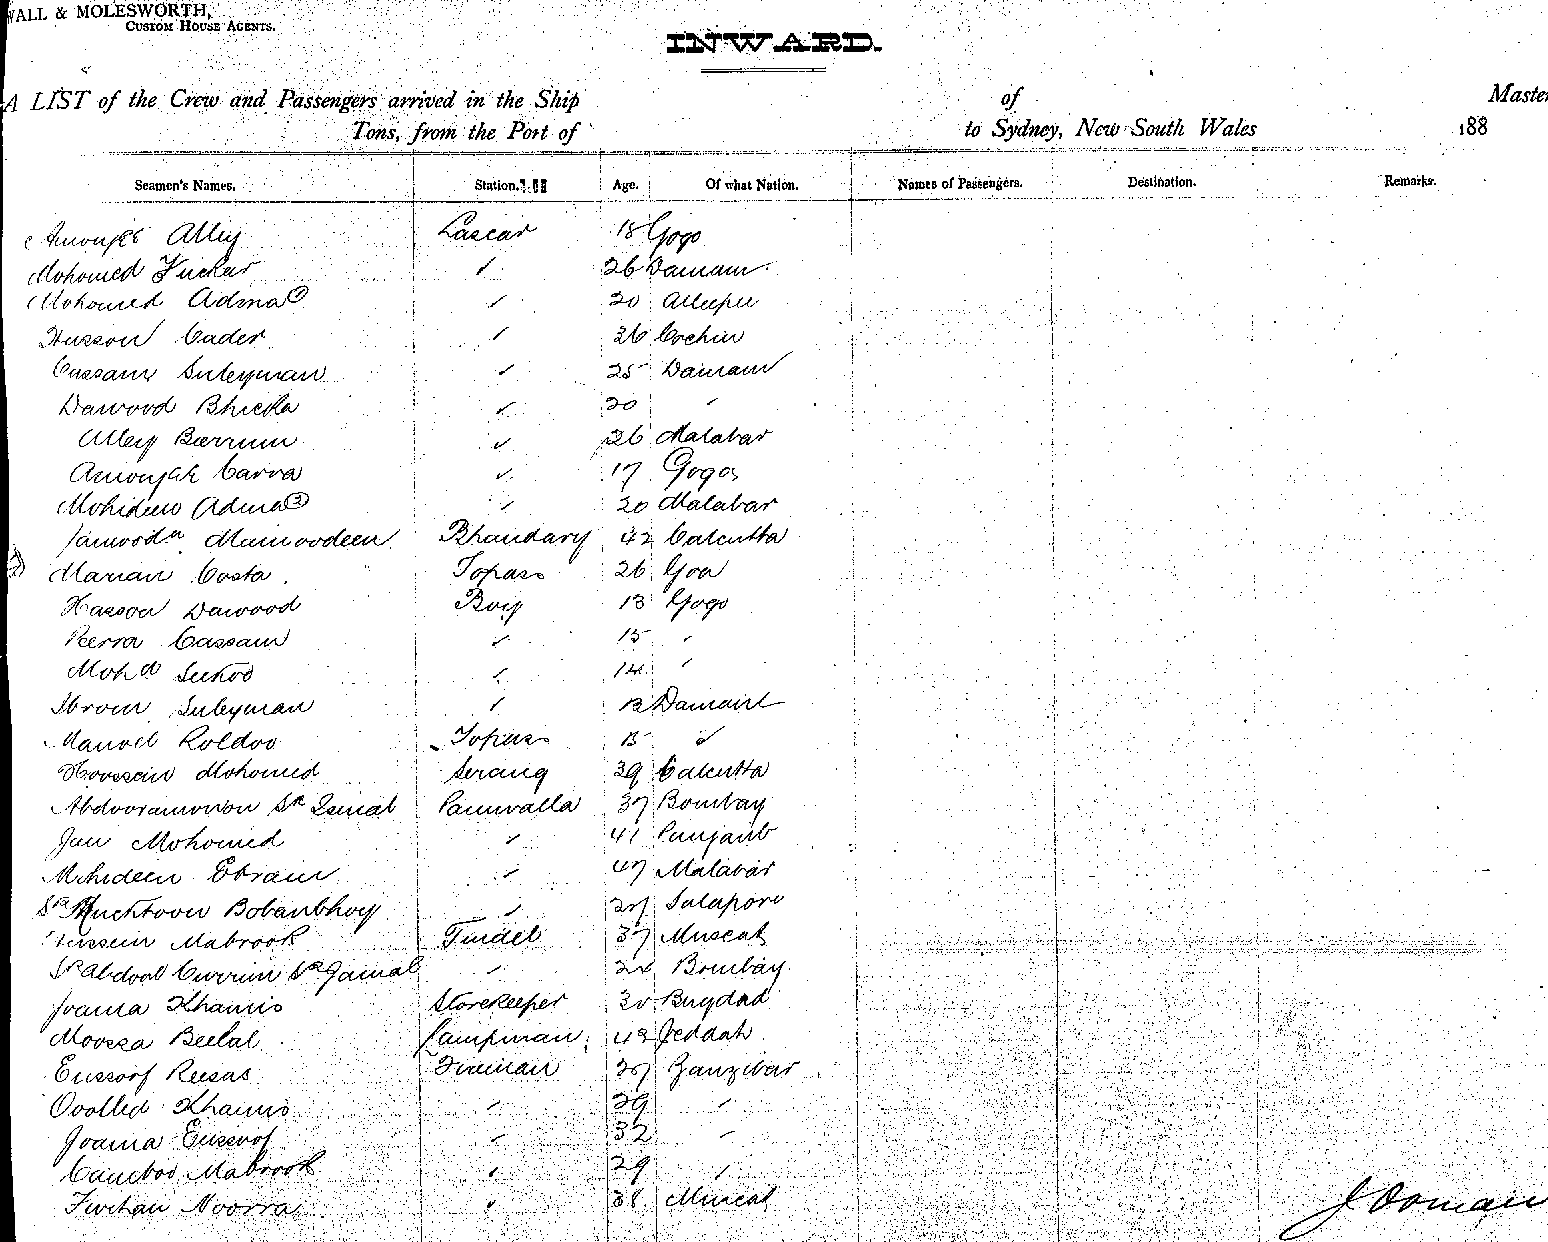 WALL & MOLESWORTH,
CUSTOM HOUSE AGENTS.
INWARD.
A LIST of the Crew and Passengers arrived in the Ship of Master
Tons, from the Port of to Sydney, New South Wales 188
Seamen's Names. Station. Age. Of what Nation. Names of Passengers. Destination. Remarks.
Alley Lascar 18 Gogo
Mohomed 〃 26 Damaun
Mohomed Adma ① 〃 20 Alleepee
Husson Cader 〃 26 Cochin
Cassam Suleyman 〃 25 Damaun
Dawood Bhicka 〃 20 〃
Alley Burrum 〃 26 Malabar
Carva 〃 17 Gogo
Mohideen Adma ② 〃 20 Malabar
Mamoodeen Bhandary 42 Calcutta
Marian Costa Topass 26 Goa
Hasson Dawood Boy 13 Gogo
Peerra Cassam 〃 15 〃
Mohd 〃 14 〃
Ibram Suleyman 〃 13 Damaun
Manoel Roldoo Topass 15 〃
Hoossein Mohomed Serang 39 Calcutta
Sk Ismal Pannvalla 37 Bombay
Jan Mohomed 〃 41 Punjaub
Mohideen Ebram 〃 47 Malabar
Sk Bobanbhoy 〃 27
Hussein Mabrook Tindel 37 Muscat
Sk Abdool Currim Sk Jamal 〃 Bombay
Joama Khamis Storekeeper 30 Bugdad
Moossa Beelal Lampman 43 Jeddah
Eussoof Reesas Fireman 27 Zanzibar
Oolled Khamis 〃 29 〃
Joama Eussoof 〃 32 〃
Camboo Mabrook 〃 29 〃
Noorra 〃 38 Muscat